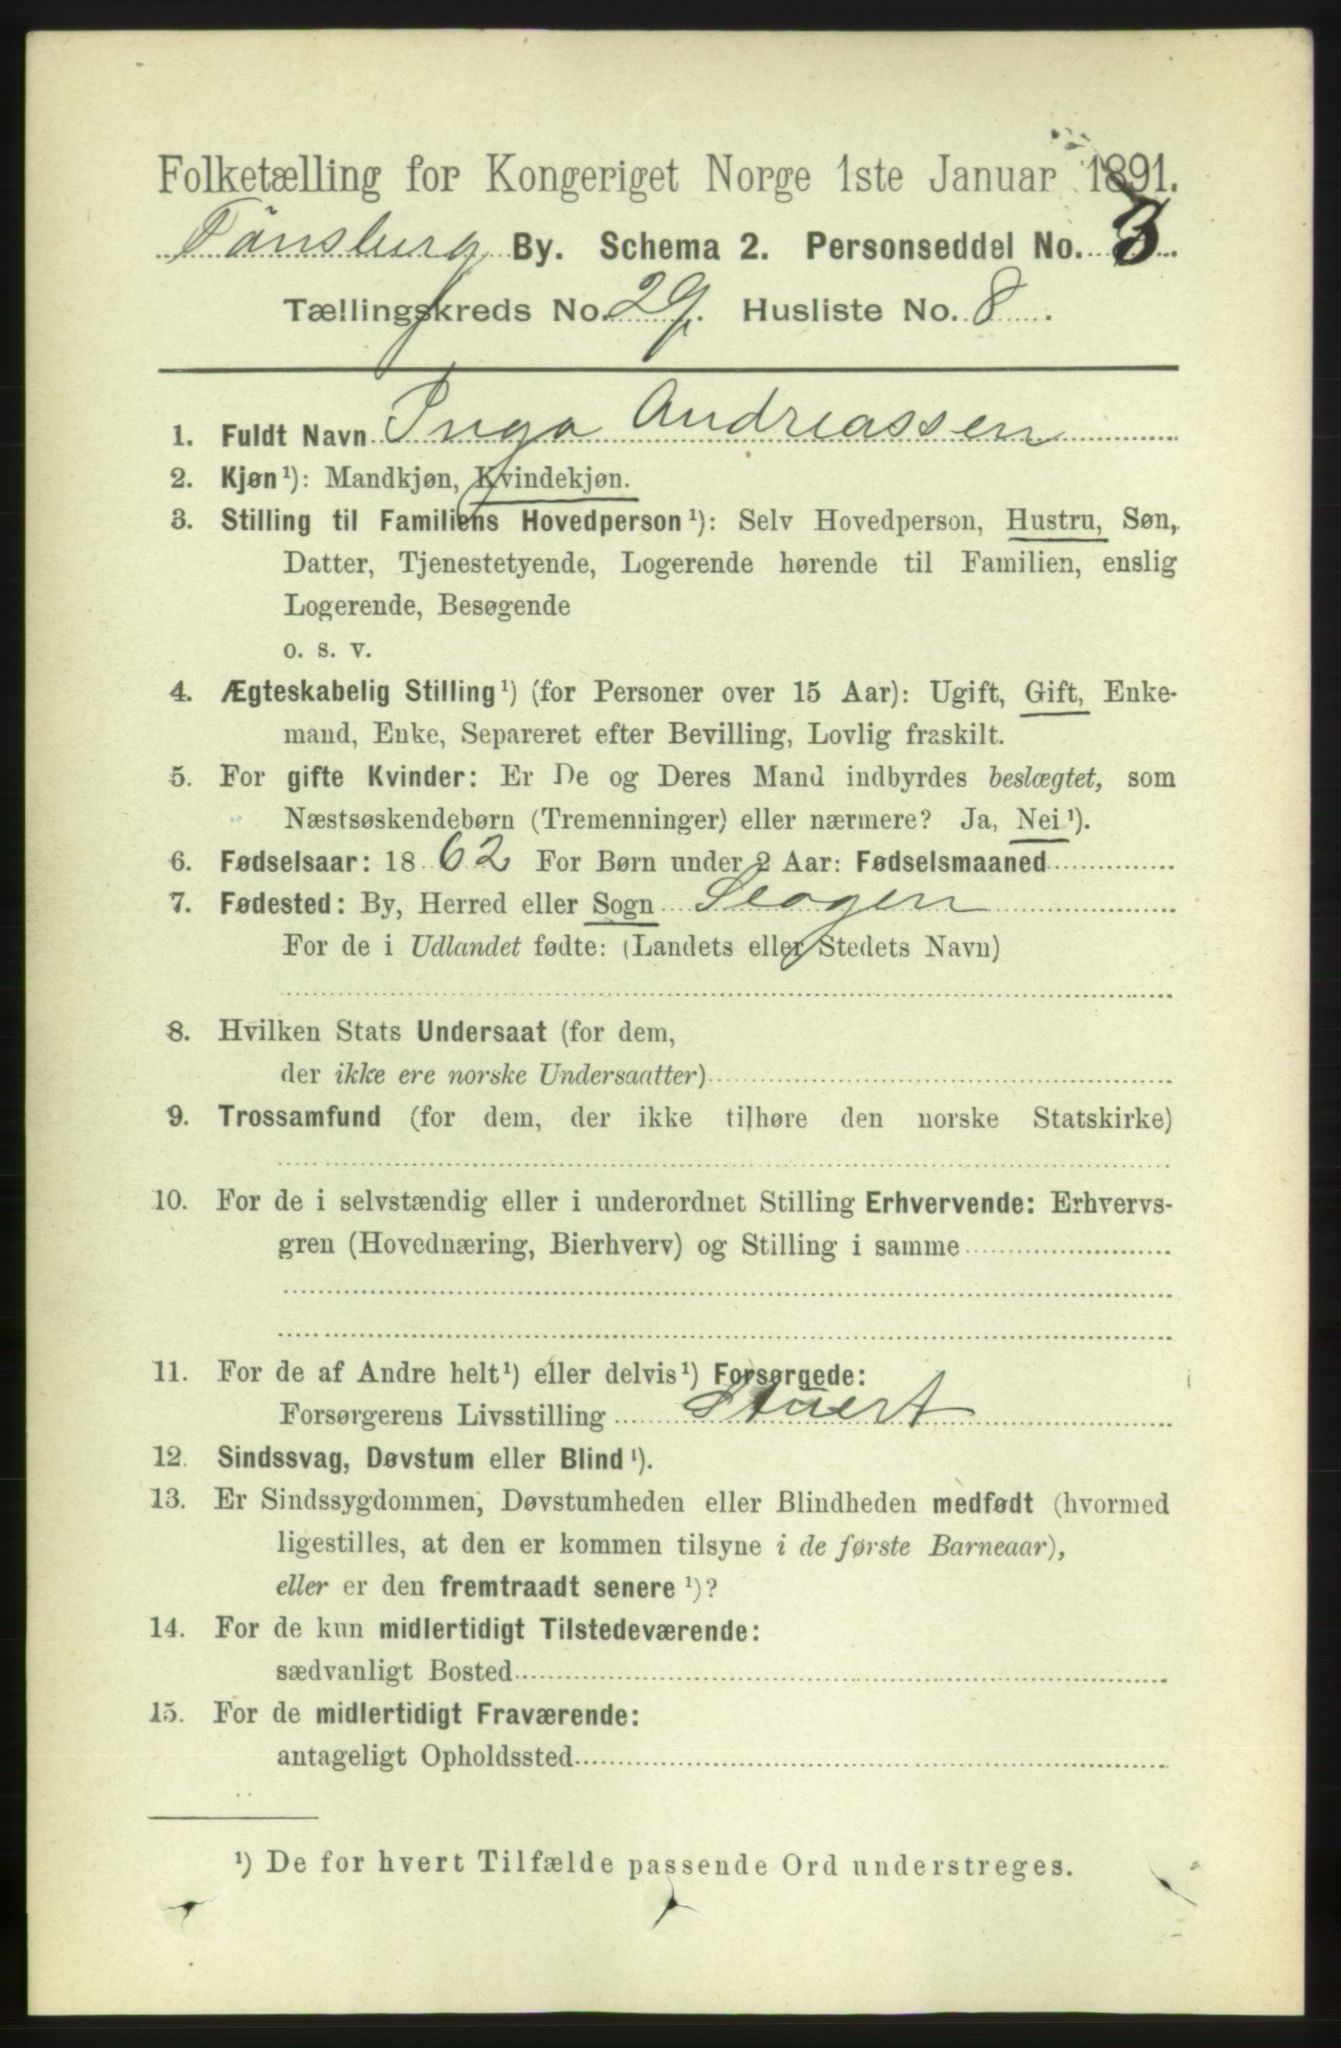 Folketælling for Kongeriget Norge 1ste Januar 1891.
Tönsberg By. Schema 2. Personseddel No. 3
Tællingskreds No. 29. Husliste No. 8.
1. Fuldt Navn Inga Andreassen
2. Kjøn¹): Mandkjøn, Kvindekjøn.
3. Stilling til Familiens Hovedperson¹): Selv Hovedperson, Hustru, Søn,
Datter, Tjenestetyende, Logerende hørende til Familien, enslig
Logerende, Besøgende
o. s. v.
4. Ægteskabelig Stilling¹) (for Personer over 15 Aar): Ugift, Gift, Enke-
mand, Enke, Separeret efter Bevilling, Lovlig fraskilt.
5. For gifte Kvinder: Er De og Deres Mand indbyrdes beslægtet, som
Næstsøskendebørn (Tremenninger) eller nærmere? Ja, Nei¹).
6. Fødselsaar: 1862 For Børn under 2 Aar: Fødselsmaaned
7. Fødested: By, Herred eller Sogn Slagen
For de i Udlandet fødte: (Landets eller Stedets Navn)
8. Hvilken Stats Undersaat (for dem,
der ikke ere norske Undersaatter)
9. Trossamfund (for dem, der ikke tilhøre den norske Statskirke)
10. For de i selvstændig eller i underordnet Stilling Erhvervende: Erhvervs-
gren (Hovednæring, Bierhverv) og Stilling i samme
11. For de af Andre helt¹) eller delvis¹) Forsørgede:
Forsørgerens Livsstilling Stuert
12. Sindssvag, Døvstum eller Blind¹).
13. Er Sindssygdommen, Døvstumheden eller Blindheden medfødt (hvormed
ligestilles, at den er kommen tilsyne i de første Barneaar),
eller er den fremtraadt senere¹)?
14. For de kun midlertidigt Tilstedeværende:
sædvanligt Bosted
15. For de midlertidigt Fraværende:
antageligt Opholdssted
¹) De for hvert Tilfælde passende Ord understreges.